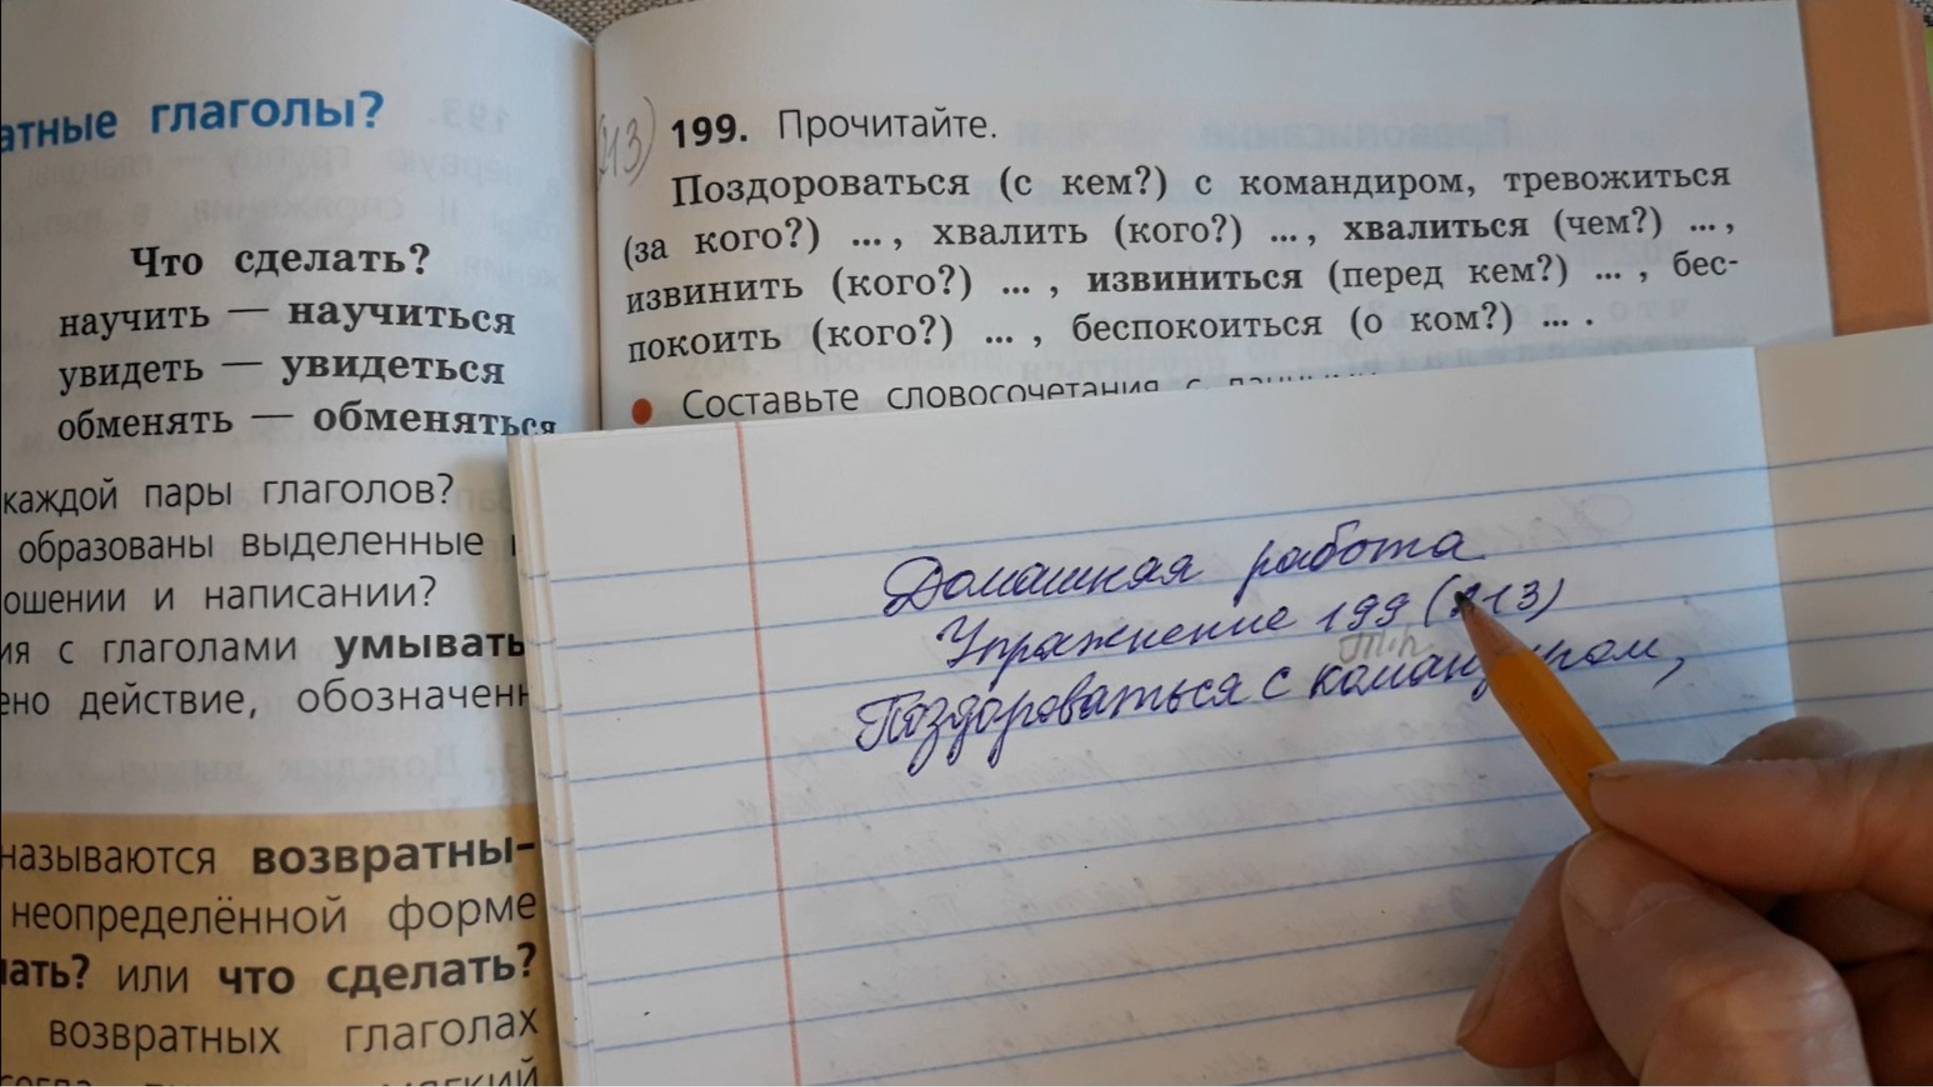 глаголы?
Что сделать?
научить — научиться
увидеть — увидеться
обменять — обменяться
каждой пары глаголов?
образованы выделенные
ошении и написании?
ия с глаголами умывать
ено действие, обозначенн
называются возвратны-
неопределённой форме
лать? или что сделать?
возвратных глаголах
199. Прочитайте.
Поздороваться (с кем?) с командиром, тревожиться
(за кого?) ... , хвалить (кого?) ... , хвалиться (чем?) ... ,
извинить (кого?) ... , извиниться (перед кем?) ... , бес-
покоить (кого?) ... , беспокоиться (о ком?) ... .
• Составьте словосочетания с
Домашняя работа
Упражнение 199 (213)
Т.п.
Поздороваться с командиром,